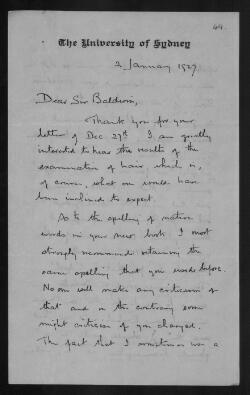 64.
The University of Sydney
2 January 1927.
Dear Sir Baldwin,
Thank you for your
letter of Dec 27th I am greatly
interested to hear the results of the
examination of hair, which is,
of course, what one would have
been inclined to expect.
As to the spelling of native
words in your new book I most
strongly recommend retaining the
same spelling that you used before.
No one will make any criticism of
that and on the contrary some
might criticise if you changed.
The fact that I sometimes use a